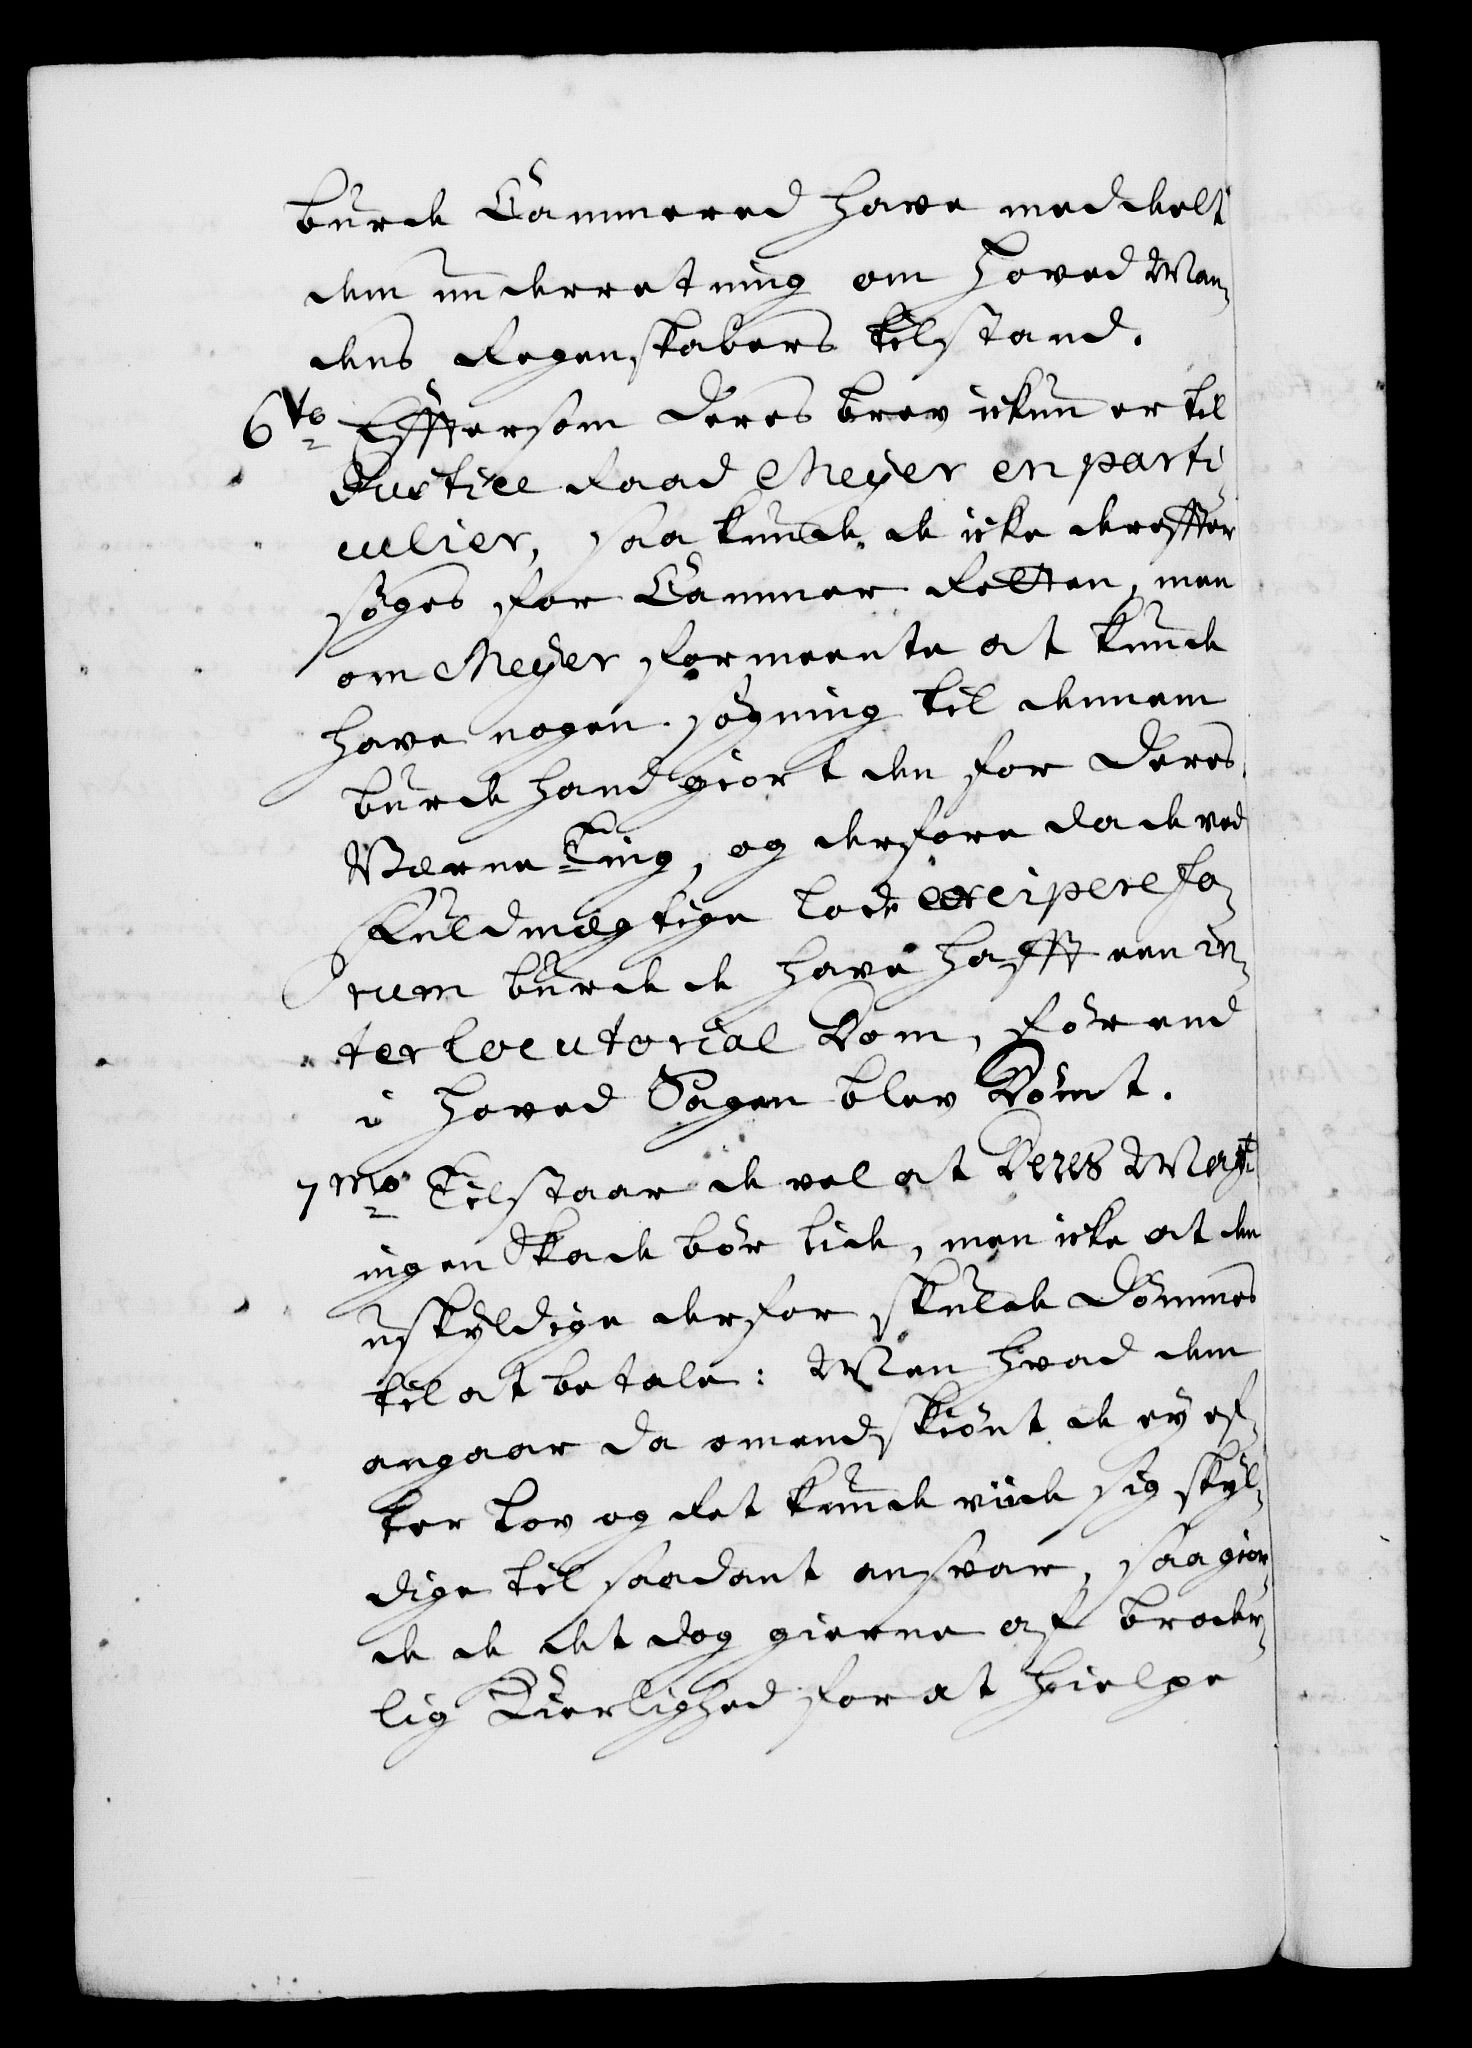 burde Cammered have meddeelt
dem underretning om Hoved Man¬
dens Regenskabers tilstand.
6to Efftersom deres brev ickun er til
Justice Raad Meÿer en parti
culier, saa kunde de icke dereffter
søges for Cammer Retten, men
om Meÿer formeente at kunde
have nogen søgning til dennem
burde hand giort den for deres
Værne Ting, og derfore da de ved
Fuldmægtige lod excipere fo¬
rum burde de have hafft een in¬
terlocutorial Dom, førend
i Hoved Sagen blev Dømt.
7mo Tilstaar de vel at Deres Mayt
ingen Skade bør lide, men icke at den
uskÿldige derfor skulde dømmes
til at betale: Men hvad dem
angaar da omendskiønt de eÿ ef¬
ter Lov og Ret kunde viide sig skÿl¬
dige til saadant ansvar, saa gior¬
de de det dog gierne af broder¬
lig Kierlighed for at hielpe